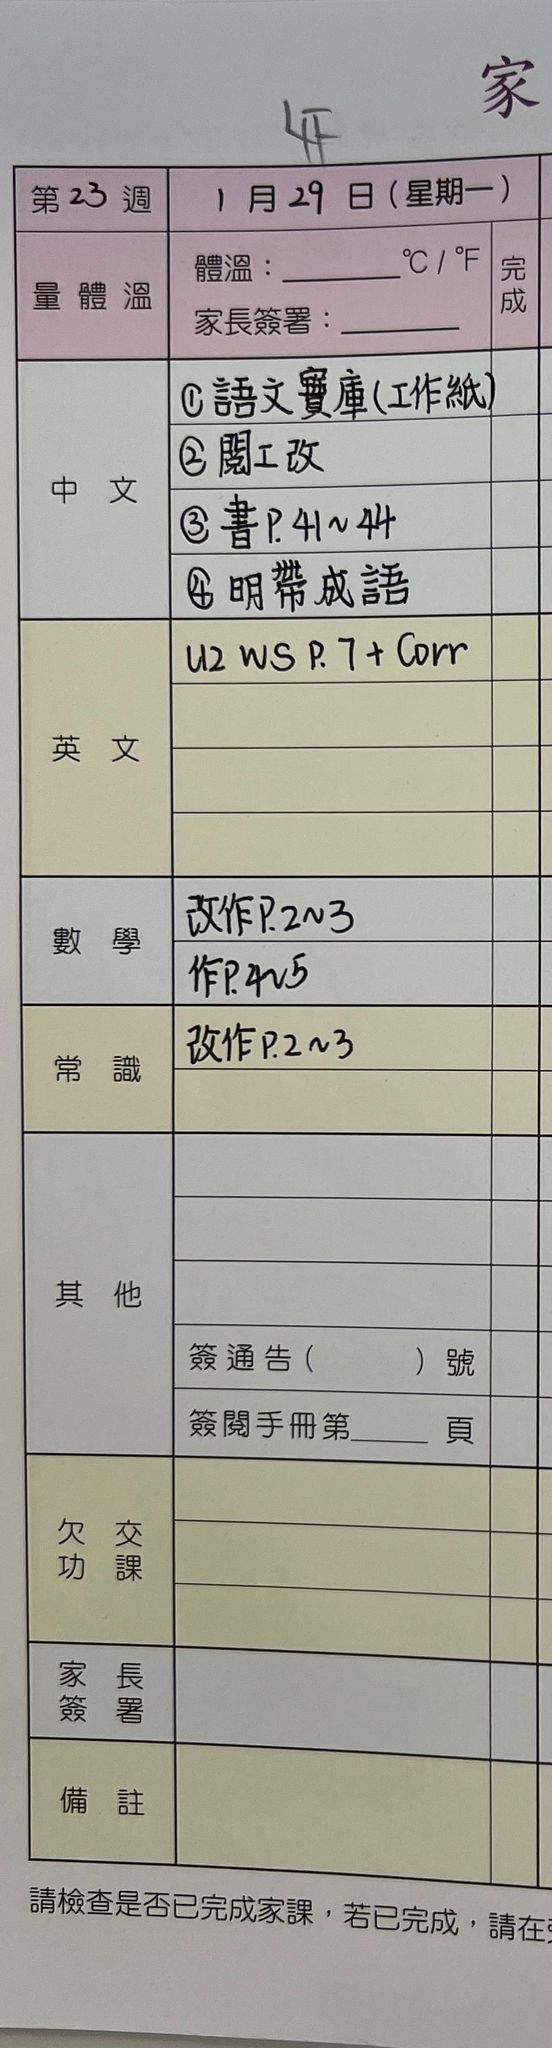 家
4F
第23週 1月29日(星期一)
量體溫 體溫：______°C / °F 完成
家長簽署：______
中文
①語文寶庫(工作紙)
②閱工改
③書P.41~44
④明帶成語
英文
U2 WS P.7 + Corr
數學
改作P.2~3
作P.4~5
常識
改作P.2~3
其他
簽通告( )號
簽閱手冊第____頁
欠交功課
家長簽署
備註
請檢查是否已完成家課，若已完成，請在